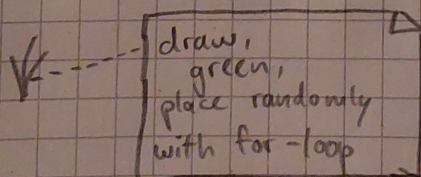 draw,
green,
place randomly
with for-loop